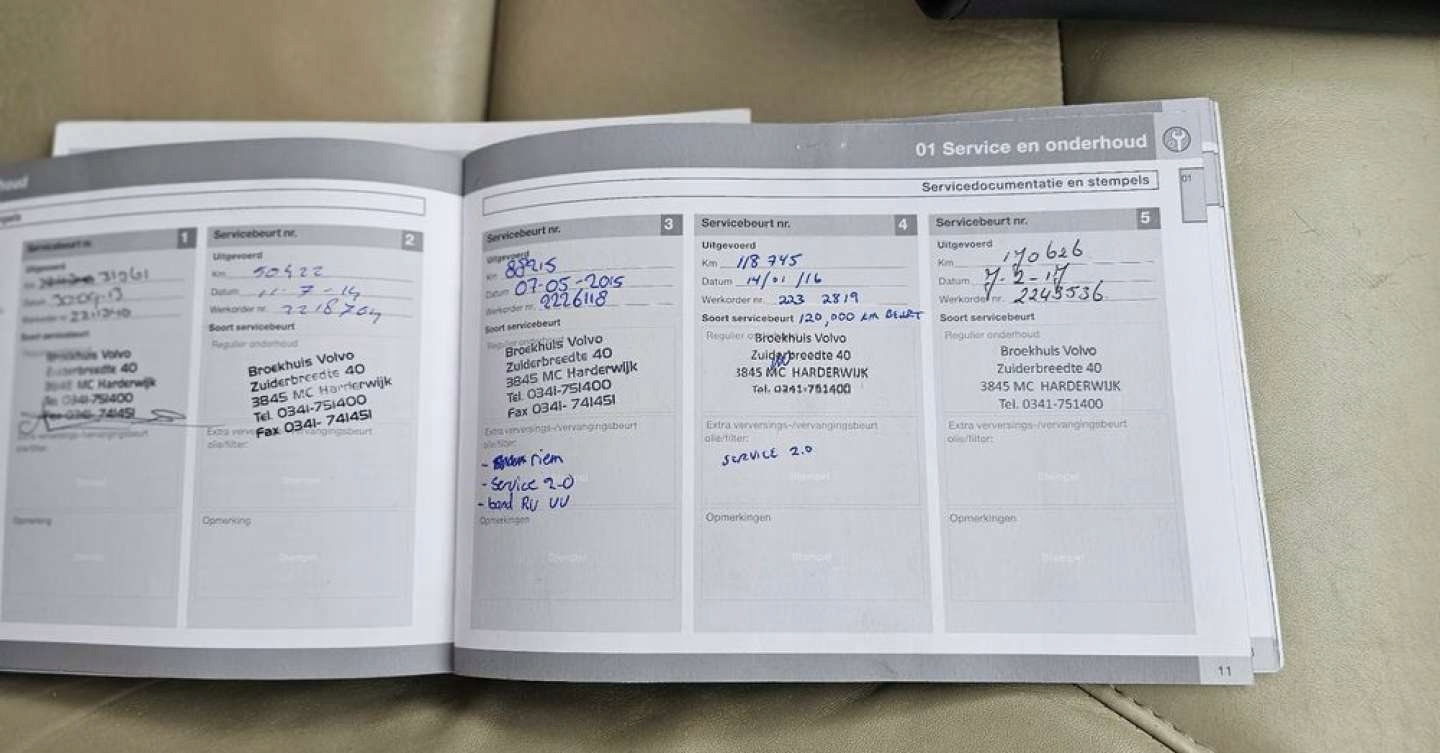 01 Service en onderhoud
Servicedocumentatie en stempels
01
Servicebeurt nr. 1
Uitgevoerd
31961
Datum
Werkorder nr.
Soort servicebeurt
Broekhuis Volvo
Zuiderbreedte 40
3845 MC Harderwijk
Tel. 0341-751400
Fax 0341- 741451
Extra verversings-/vervangingsbeurt
olie/filter:
Opmerking
Servicebeurt nr. 2
Uitgevoerd
Km 50422
Datum 11-7-14
Werkorder nr. 2218704
Soort servicebeurt
Regulier onderhoud
Broekhuis Volvo
Zuiderbreedte 40
3845 MC Harderwijk
Tel. 0341-751400
Fax 0341- 741451
Extra verversings-/vervangingsbeurt
olie/filter:
Stempel
Opmerking
Stempel
Servicebeurt nr. 3
Uitgevoerd
Km 88215
Datum 07-05-2015
Werkorder nr. 2226118
Soort servicebeurt
Regulier onderhoud
Broekhuis Volvo
Zuiderbreedte 40
3845 MC Harderwijk
Tel. 0341-751400
Fax 0341- 741451
Extra verversings-/vervangingsbeurt
olie/filter:
- riem
- Service 2-0
- band RV VV
Opmerkingen
Stempel
Servicebeurt nr. 4
Uitgevoerd
Km 118745
Datum 14/01/16
Werkorder nr. 223 2819
Soort servicebeurt 120,000 km BEURT
Regulier onderhoud
Broekhuis Volvo
Zuiderbreedte 40
3845 MC HARDERWIJK
Tel. 0341-751400
Extra verversings-/vervangingsbeurt
olie/filter:
SERVICE 2.0
Stempel
Opmerkingen
Stempel
Servicebeurt nr. 5
Uitgevoerd
Km 170626
Datum 7-2-17
Werkorder nr. 2243536
Soort servicebeurt
Regulier onderhoud
Broekhuis Volvo
Zuiderbreedte 40
3845 MC HARDERWIJK
Tel. 0341-751400
Extra verversings-/vervangingsbeurt
olie/filter:
Stempel
Opmerkingen
Stempel
11